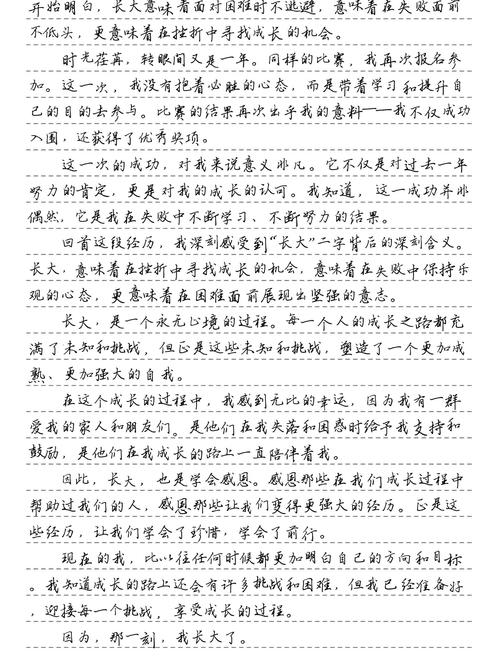 开始明白，长大意味着面对困难时不逃避，意味着在失败面前
不低头，更意味着在挫折中寻找成长的机会。
时光荏苒，转眼间又是一年。同样的比赛，我再次报名参
加。这一次，我没有抱着必胜的心态，而是带着学习和提升自
己的目的去参与。比赛的结果再次出乎我的意料——我不仅成功
入围，还获得了优秀奖项。
这一次的成功，对我来说意义非凡。它不仅是对过去一年
努力的肯定，更是对我的成长的认可。我知道，这一成功并非
偶然，它是我在失败中不断学习、不断努力的结果。
回首这段经历，我深刻感受到“长大”二字背后的深刻含义。
长大，意味着在挫折中寻找成长的机会，意味着在失败中保持乐
观的心态，更意味着在困难面前展现出坚强的意志。
长大，是一个永无止境的过程。每一个人的成长之路都充
满了未知和挑战，但正是这些未知和挑战，塑造了一个更加成
熟、更加强大的自我。
在这个成长的过程中，我感到无比的幸运，因为我有一群
爱我的家人和朋友们。是他们在我失落和困惑时给予我支持和
鼓励，是他们在我成长的路上一直陪伴着我。
因此，长大，也是学会感恩。感恩那些在我们成长过程中
帮助过我们的人，感恩那些让我们变得更强大的经历。正是这
些经历，让我们学会了珍惜，学会了前行。
现在的我，比以往任何时候都更加明白自己的方向和目标
。我知道成长的路上还会有许多挑战和困难，但我已经准备好
，迎接每一个挑战，享受成长的过程。
因为，那一刻，我长大了。